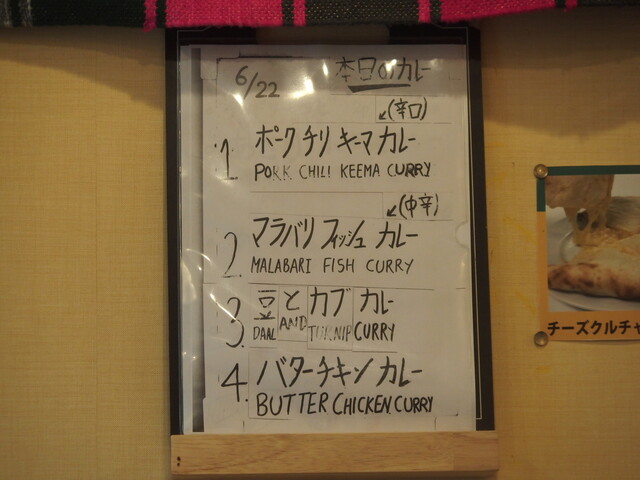 6/22 本日のカレー
↙(辛口)
1 ポークチリキーマカレー
PORK CHILI KEEMA CURRY
↙(中辛)
2 マラバリフィッシュカレー
MALABARI FISH CURRY
3. 豆とカブカレー
DAAL AND TURNIP CURRY
4. バターチキンカレー
BUTTER CHICKEN CURRY
チーズクルチャ